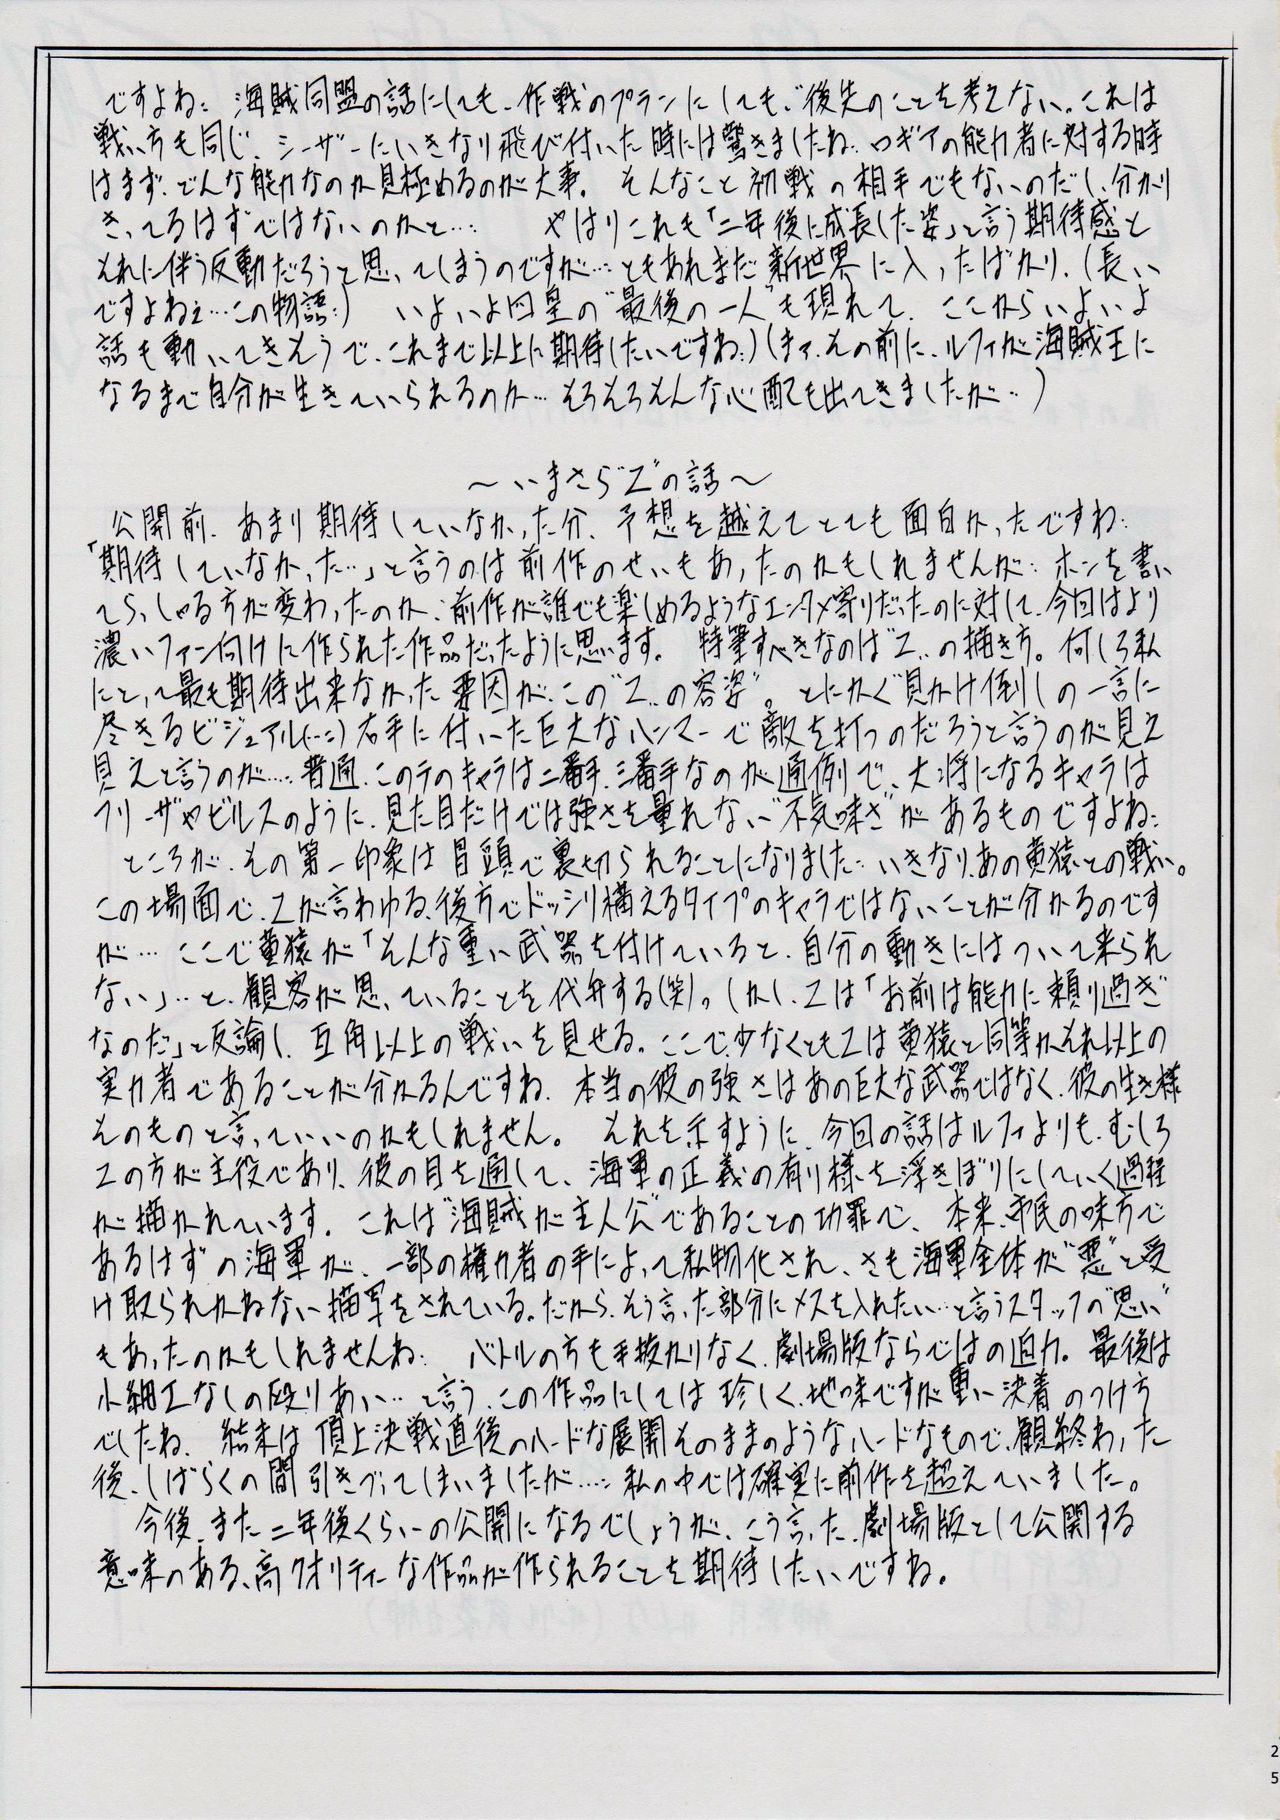 ですよね… 海賊同盟の話にしても、作戦のプランにしても、"後先のことを考えない"。これは
戦い方も同じ、シーザーにいきなり飛び付いた時には驚きましたね… ロギアの能力者に対する時
はまず、どんな能力なのか見極めるのが大事。 そんなこと初戦の相手でもないのだし、分かり
きってるはずではないのかと…… やはりこれも「二年後に成長した姿」と言う期待感と
それに伴う反動だろうと思ってしまうのですが…ともあれまだ新世界に入ったばかり、(長い
ですよねェ…この物語…) いよいよ四皇の"最後の一人"も現れて、ここからいよいよ
話も動いてきそうで、これまで以上に期待したいですね…)(まァ、その前に、ルフィが海賊王に
なるまで自分が生きていられるのか…そろそろそんな心配も出てきましたが…)
～いまさら"Z"の話～
公開前、あまり期待していなかった分、予想を越えてとても面白かったですね…
「期待していなかった…」と言うのは前作のせいもあったのかもしれませんが… ホンを書い
てらっしゃる方が変わったのか、前作が誰でも楽しめるようなエンタメ寄りだったのに対して、今回はより
濃いファン向けに作られた作品だったように思います。 特筆すべきなのは"Z"の描き方。何しろ私
にとって最も期待出来なかった要因が、この"Z"の容姿"。とにかく"見かけ倒し"の一言に
尽きるビジュアル(…) 右手に付いた巨大なハンマーで敵を打つのだろうと言うのが見え
見えと言うのが…… 普通、このテのキャラは二番手、三番手なのが通例で、大将になるキャラは
フリーザやビルスのように、見た目だけでは強さを量れない"不気味さ"があるものですよね…
ところが、その第一印象は冒頭で裏切られることになりました… いきなり、あの黄猿との戦い。
この場面で、Zが言わゆる、後方でドッシリ構えるタイプのキャラではないことが分かるのです
が… ここで黄猿が「そんな重い武器を付けていると、自分の動きにはついて来られ
ない」…と、観客が思っていることを代弁する(笑)。しかし、Zは「お前は能力に頼り過ぎ
なのだ」と反論し、互角以上の戦いを見せる。ここで、少なくともZは黄猿と同等かそれ以上の
実力者であることが分かるんですね、 本当の彼の強さはあの巨大な武器ではなく、彼の生き様
そのものと言っていいのかもしれません。 それを示すように、今回の話はルフィよりも、むしろ
Zの方が主役であり、彼の目を通して、海軍の正義の有り様を浮きぼりにしていく過程
が描かれています。 これは"海賊が主人公"であることの功罪で、本来、市民の味方で
あるはずの海軍が、一部の権力者の手によって私物化され、さも海軍全体が"悪"と受
け取られかねない描写をされている。だから、そう言った部分にメスを入れたい…と言うスタッフの"思い"
もあったのかもしれませんね… バトルの方も手抜かりなく、劇場版ならではの迫力。最後は
小細工なしの殴りあい…と言う、この作品にしては珍しく、地味ですが重い決着のつけ方
でしたね、 結末は頂上決戦直後のハードな展開そのままのようなハードなもので、観終わった
後、しばらくの間引きづってしまいましたが……私の中では確実に前作を超えていました。
今後、また二年後くらいの公開になるでしょうが、こう言った、劇場版として公開する
意味のある、高クオリティーな作品が作られることを期待したいですね。
2
5